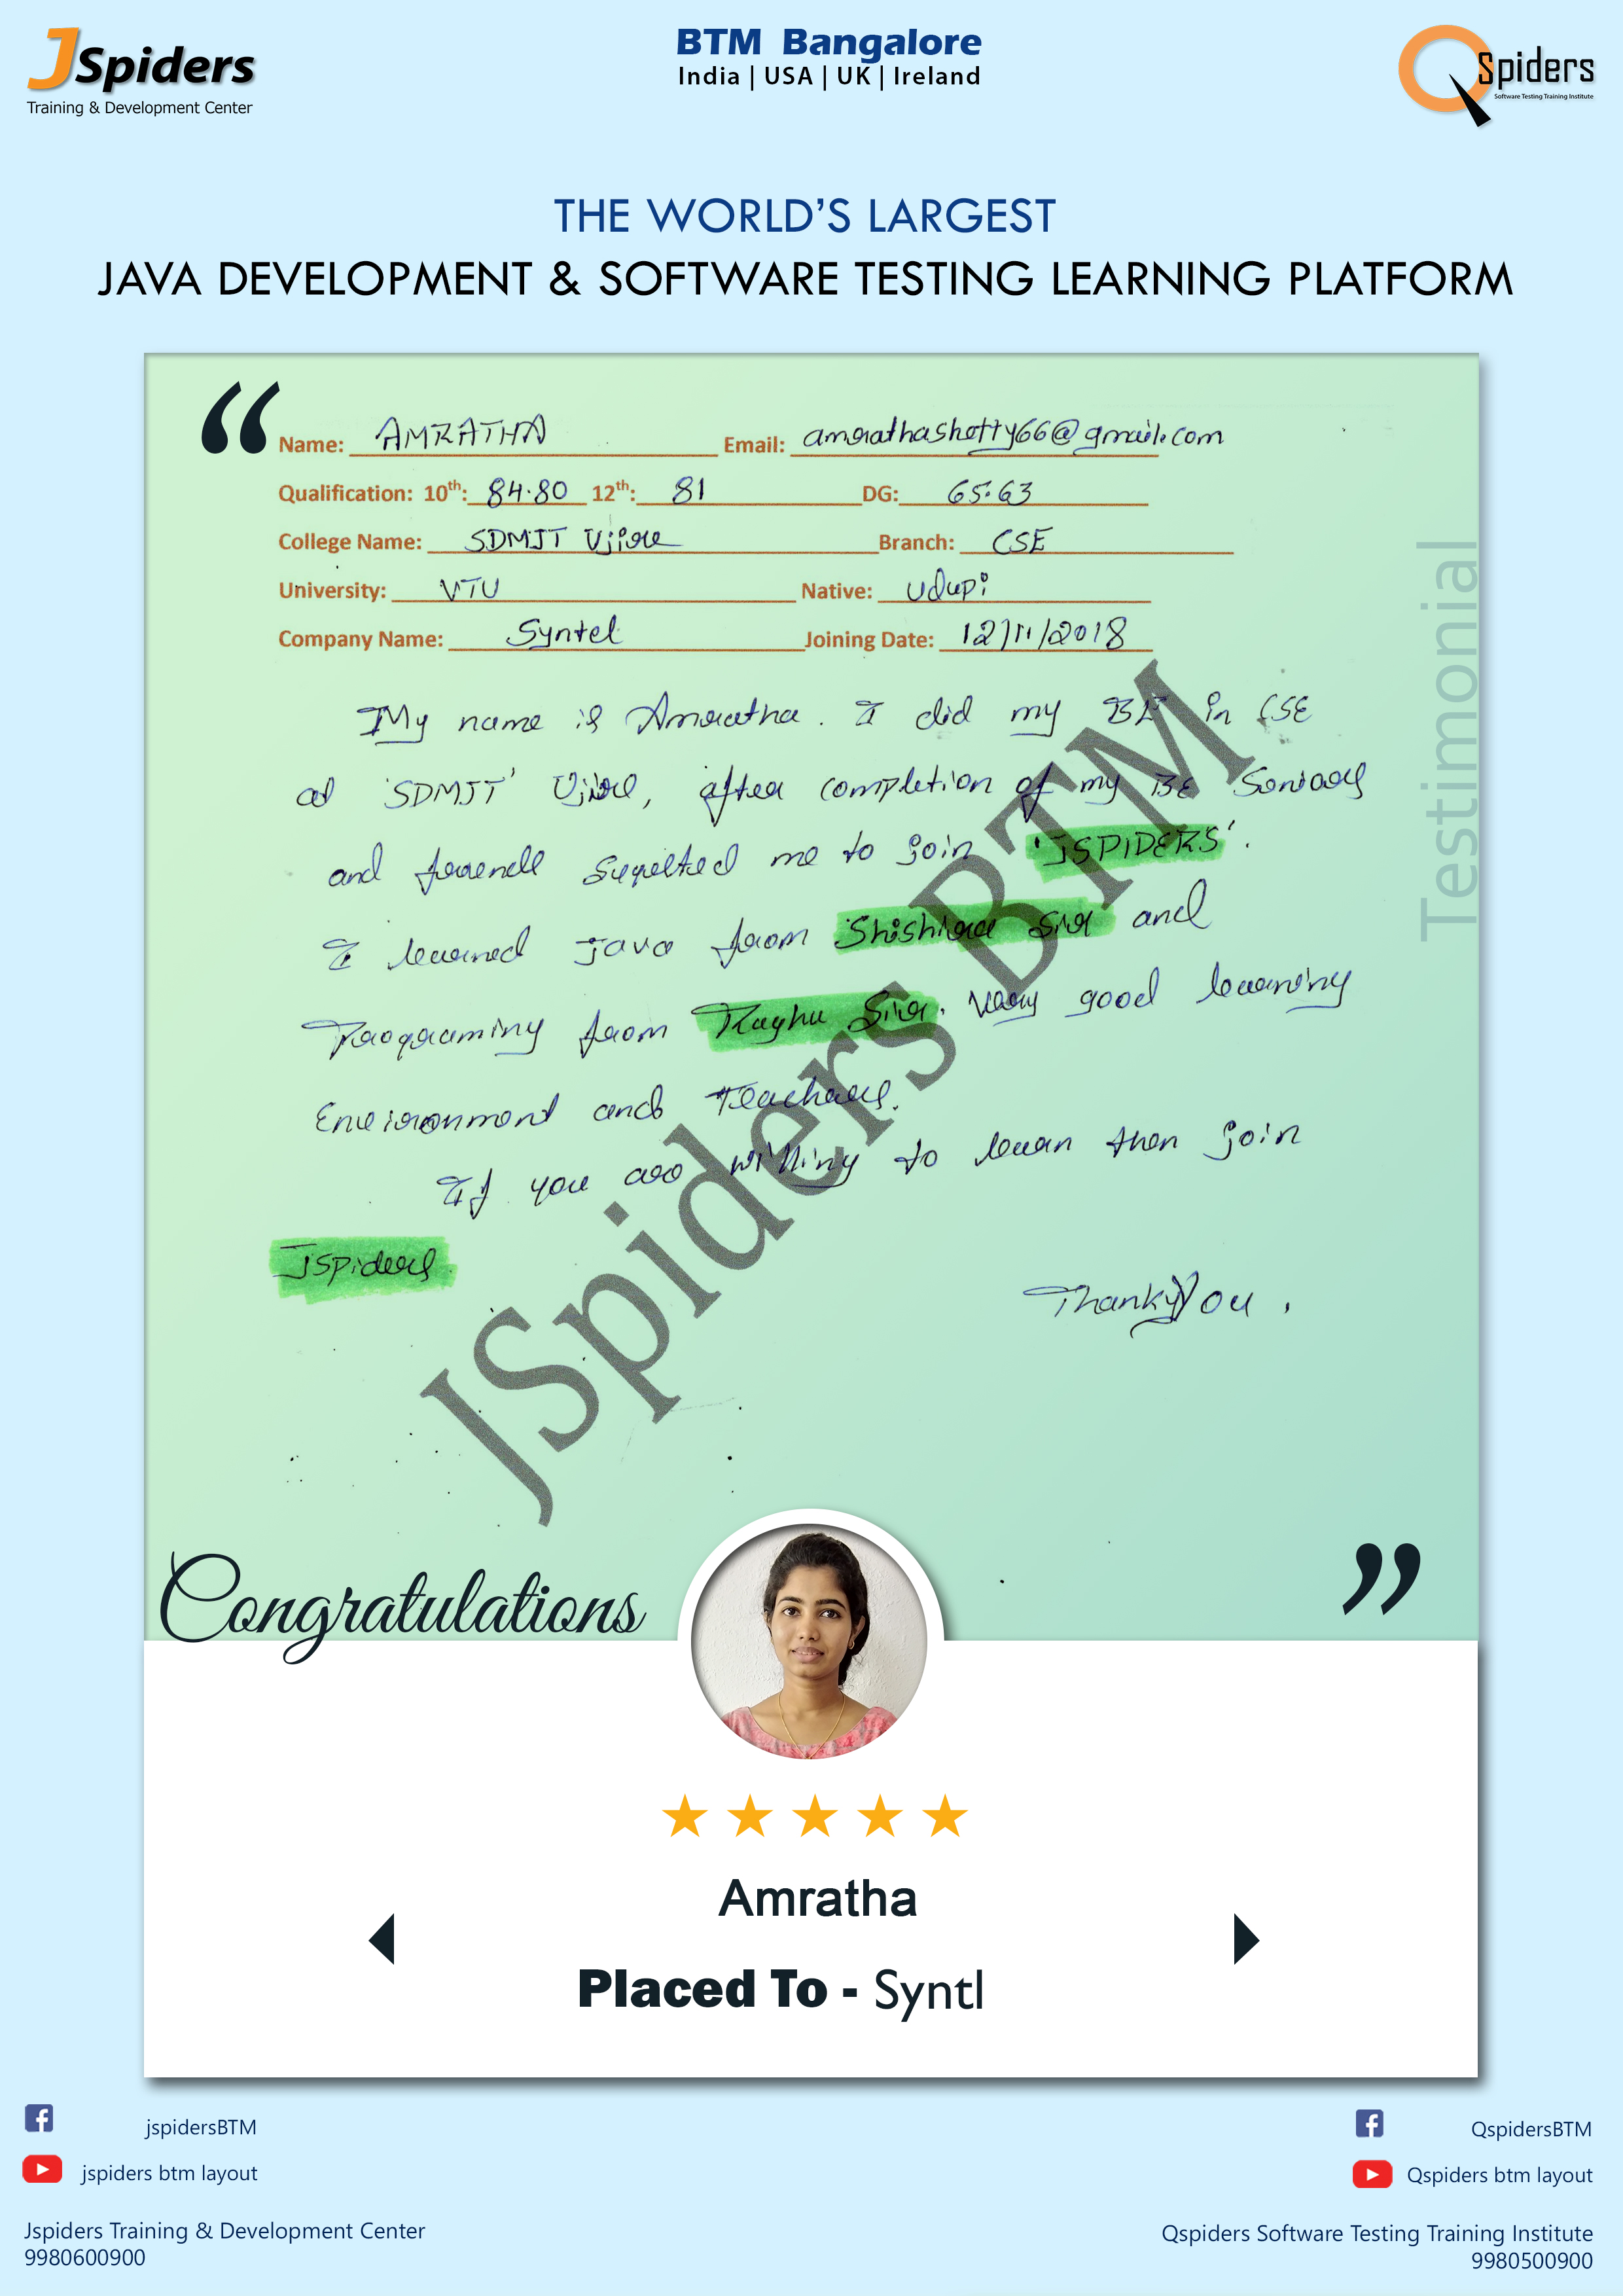 JSpiders
Training & Development Center
BTM Bangalore
India | USA | UK | Ireland
QSpiders
Software Testing Training Institute
THE WORLD'S LARGEST
JAVA DEVELOPMENT & SOFTWARE TESTING LEARNING PLATFORM
“
Name: AMRATHA Email: amrathashetty66@gmail.com
Qualification: 10th: 84.80 12th: 81 DG: 65.63
College Name: SDMIT Ujire Branch: CSE
University: VTU Native: Udupi
Company Name: Syntel Joining Date: 12/11/2018
Testimonial
My name is Amratha. I did my BE in CSE
at 'SDMIT' Ujire, after completion of my BE Seniors
and friends me to join 'JSPIDERS'.
I learned java from Shishira Sir and
Programing from Raghu Sir. Very good learning
Environment and Teachers.
If you are willing to learn then join
Jspiders
Thank You.
JSpiders BTM
Congratulations
”
Amratha
Placed To - Syntl
jspidersBTM
jspiders btm layout
Jspiders Training & Development Center
9980600900
QspidersBTM
Qspiders btm layout
Qspiders Software Testing Training Institute
9980500900